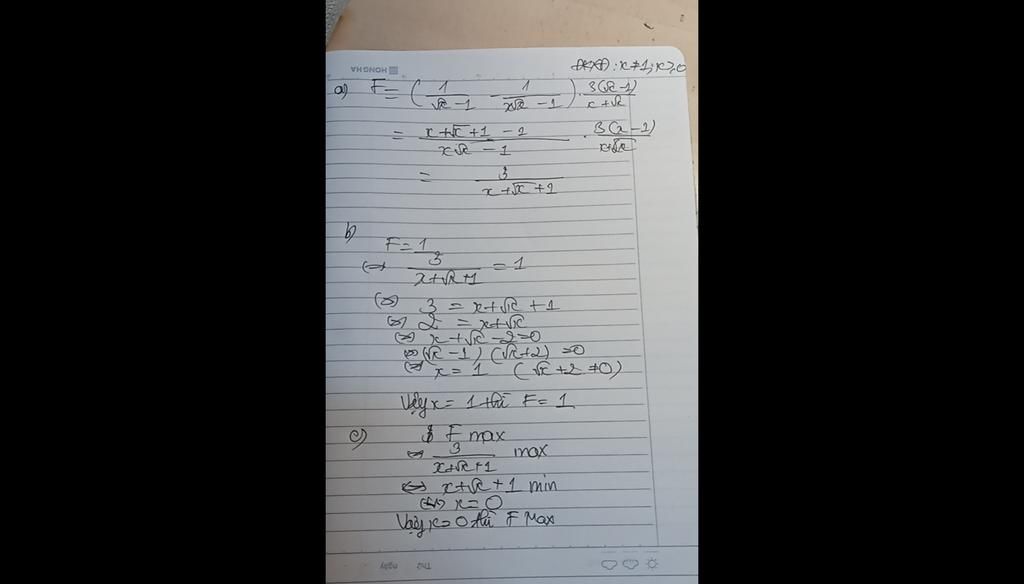 HONGHA
ĐKXĐ : x ≠ 1 ; x ≥ 0
a) F = ( 1/(√x - 1) - 1/(x√x - 1) ) . 3(√x - 1)/(x + √x)
= (x + √x + 1 - 1)/(x√x - 1) . 3(x - 1)/(x + √x)
= 3/(x + √x + 1)
b)
F = 1
⇔ 3/(x + √x + 1) = 1
⇔ 3 = x + √x + 1
⇔ 2 = x + √x
⇔ x + √x - 2 = 0
⇔ (√x - 1) (√x + 2) = 0
⇔ x = 1 (√x + 2 ≠ 0)
Vậy x = 1 thì F = 1
c) F max
⇔ 3/(x + √x + 1) max
⇔ x + √x + 1 min
⇔ x = 0
Vậy x = 0 thì F Max
Thứ ngày